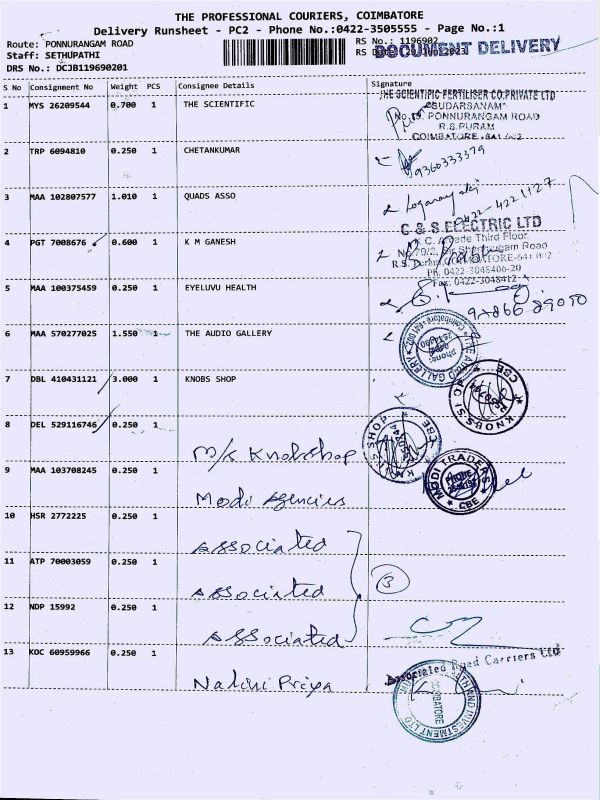 THE PROFESSIONAL COURIERS, COIMBATORE
Delivery Runsheet - PC2 - Phone No.:0422-3505555 - Page No.:1
Route: PONNURANGAM ROAD
Staff: SETHUPATHI
DRS No.: DCJB119690201
RS No.: 1196902
DOCUMENT DELIVERY
S No Consignment No Weight PCS Consignee Details Signature
1 MYS 26209544 0.700 1 THE SCIENTIFIC
THE SCIENTIFIC FERTILISER CO.PRIVATE LTD
"SUDARSANAM"
PONNURANGAM ROAD
R.S.PURAM
COIMBATORE
2 TRP 6094810 0.250 1 CHETANKUMAR
9360333379
3 MAA 102807577 1.010 1 QUADS ASSO
0422-4221127
C & S ELECTRIC LTD
4 PGT 7008676 0.600 1 K M GANESH
Third Floor
Road
COIMBATORE-641 002
Ph. 0422-3048406-20
Fax: 0422-3048412
5 MAA 100375459 0.250 1 EYELUVU HEALTH
6 MAA 570277025 1.550 1 THE AUDIO GALLERY
THE AUDIO GALLERY
7 DBL 410431121 3.000 1 KNOBS SHOP
KNOBS SHOP
CBE
8 DEL 529116746 0.250 1 M/s Knobshop
KNOBS SHOP
CBE
9 MAA 103708245 0.250 1 Modi Agencies
MODI TRADERS
PHONE
CBE
10 HSR 2772225 0.250 1 Associated
11 ATP 70003059 0.250 1 Associated
3
12 NDP 15992 0.250 1 Associated
13 KOC 60959966 0.250 1 Nalini Priya
Associated Road Carriers Ltd
INVESTMENT LTD
COIMBATORE